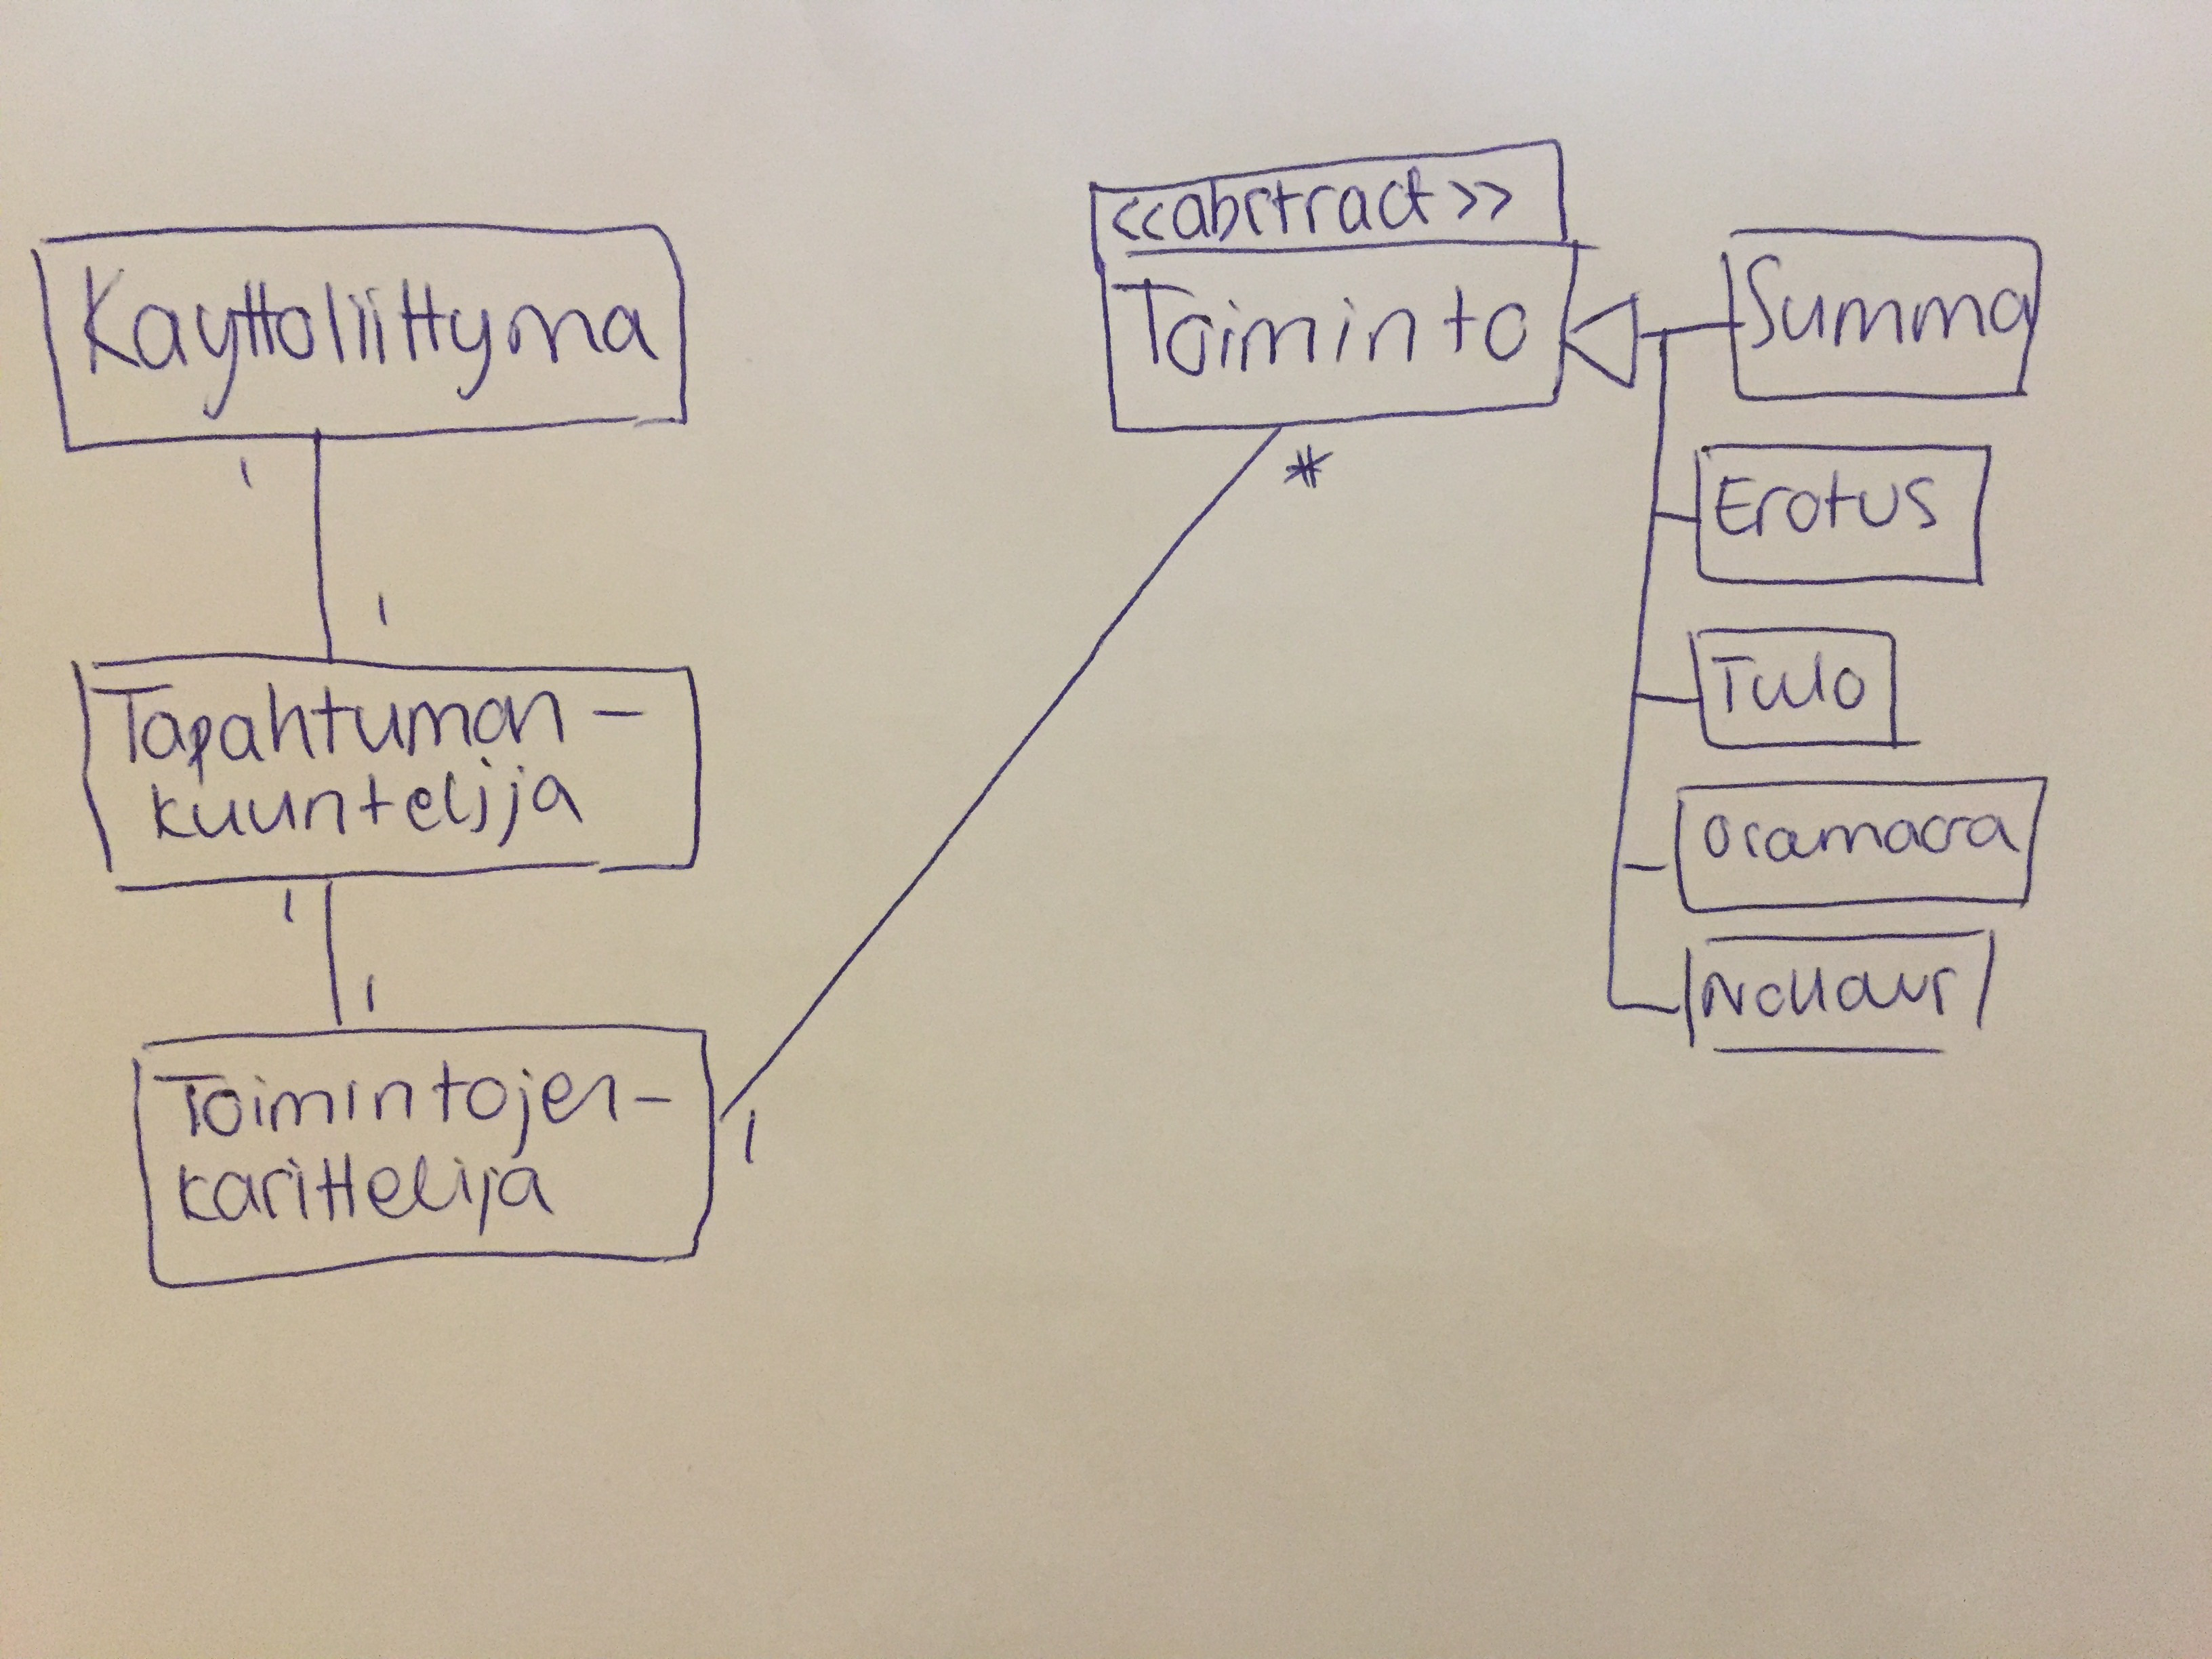 Kayttoliittyma
1
1
Tapahtuman-
kuuntelija
1
1
Toimintojen-
karittelija
1
<<abstract>>
Toiminto
*
Summa
Erotus
Tulo
Osamaara
Nollaus